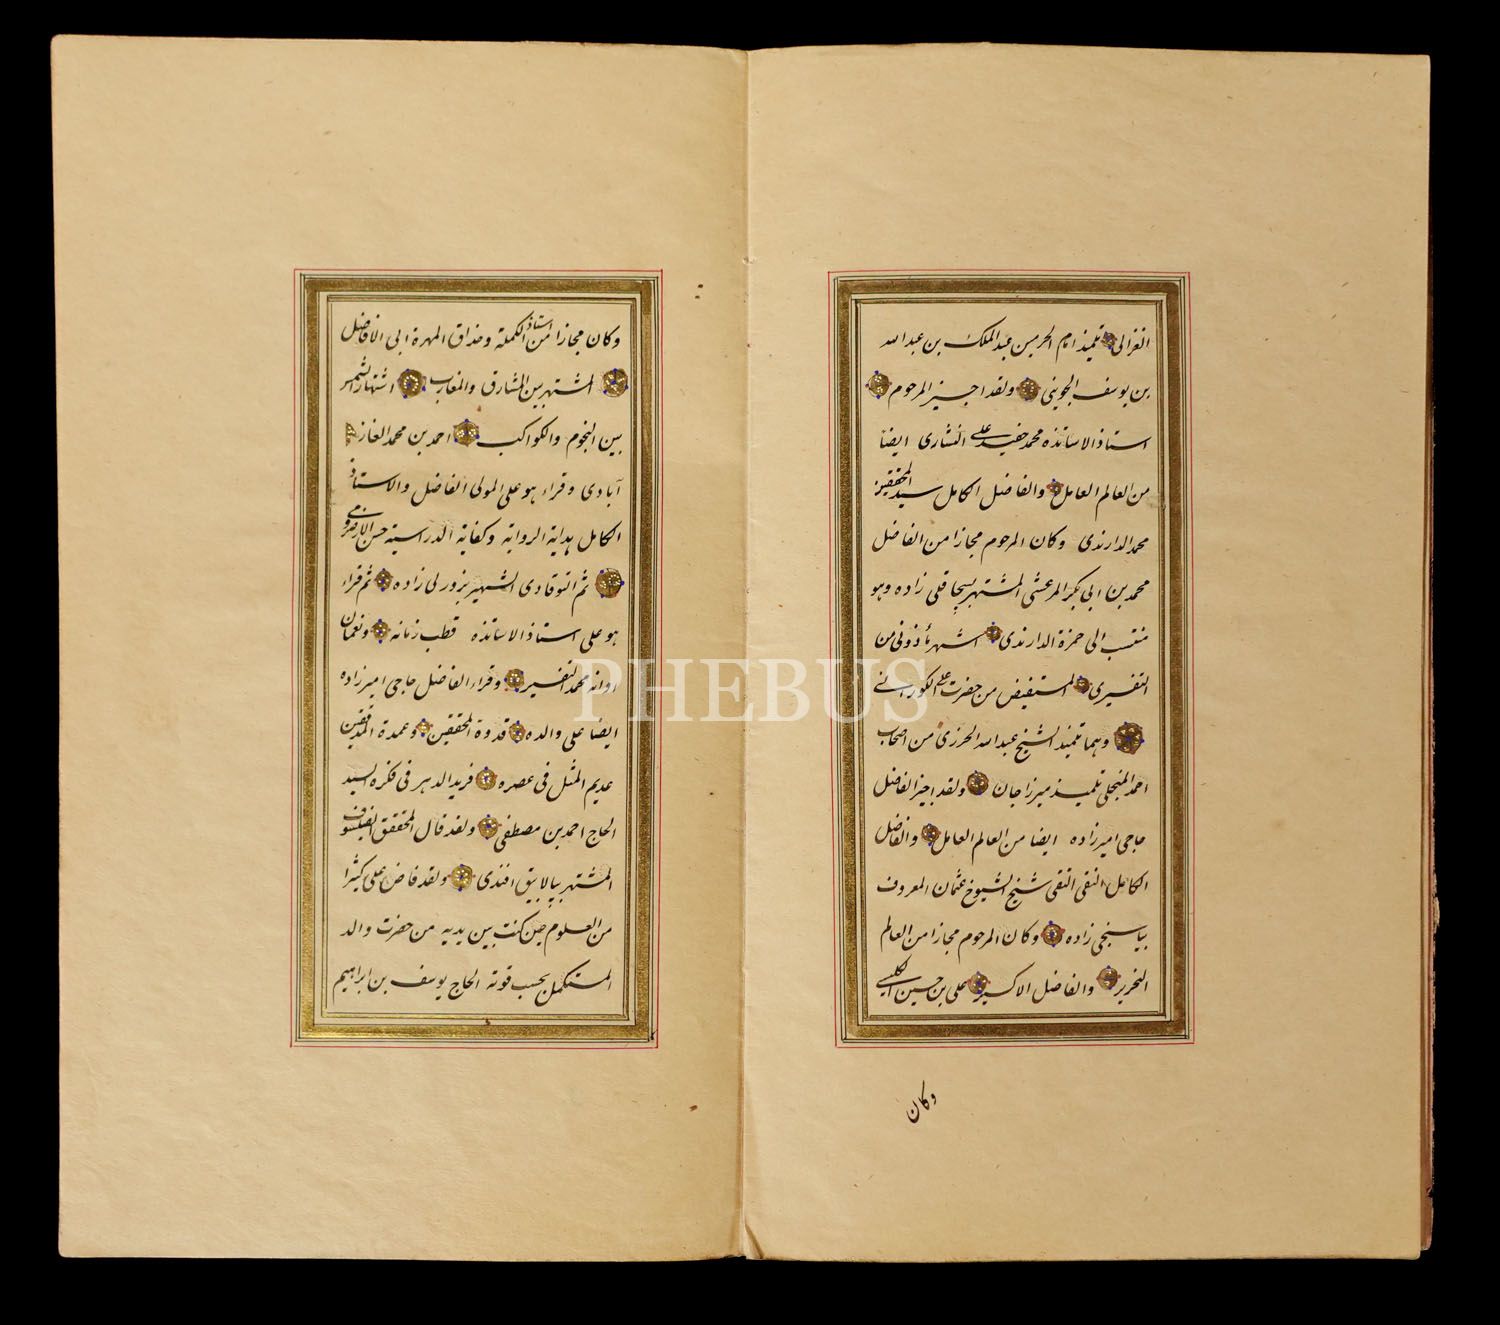 الغزالى تلميذ امام الحرمين عبد الملك بن عبد الله
بن يوسف الجوينى ولقد اجيز المرحوم
استاذ الاساتذه محمد حفيد على النشارى ايضا
من العالم العامل والفاضل الكامل سيد المحققين
محمد الدارندى وكان المرحوم مجازا من الفاضل
محمد بن ابى بكر المرعشى المشتهر بسچاقلى زاده وهو
منتسب الى حمزة الدارندى اشهر مأذونى من
التفسيرى المستفيض من حضرت على الكورانى
وهما تلميذ الشيخ عبد الله الجزرى من اصحاب
احمد المنجلى تلميذ ميرزا جان ولقد اجيز الفاضل
حاجى امير زاده ايضا من العالم العامل والفاضل
الكامل النقى التقى شيخ الشيوخ عثمان المعروف
بياسنجى زاده وكان المرحوم مجازا من العالم
النحرير والفاضل الاكسير على بن حسين
وكان
وكان مجازا من استاذ الكملة وحذاق المهرة ابى الافاضل
المشتهر بين المشارق والمغارب اشتهار الشمس
بين النجوم والكواكب احمد بن محمد الغاز
آبادى وقراء هو على المولى الفاضل والاستاذ
الكامل بداية الرواية وكفاية الدراسية حسن الارضرومى
ثم التوقادى الشهير بزورلى زاده ثم قراء
هو على استاذ الاساتذه قطب زمانه ونعمان
اوانه محمد التفسير وقراء الفاضل حاجى امير زاده
ايضا على والده قدوة المحققين وعمدة المدققين
عديم المثل فى عصره فريد الدهر فى فكره السيد
الحاج احمد بن مصطفى ولقد قال المحقق الفيلسوف
المشتهر بپالابيق افندى ولقد فاض على كثيرا
من العلوم حين كنت بين يديه من حضرت والد
المستكمل بحسب قوته الحاج يوسف بن ابراهيم
PHEBUS